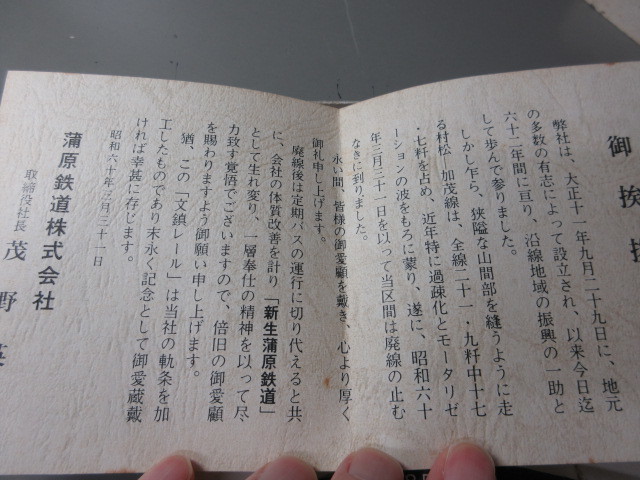 御挨拶
弊社は、大正十一年九月二十九日に、地元
の多数の有志によって設立され、以来今日迄
六十二年間に亘り、沿線地域の振興の一助と
して歩んで参りました。
しかし乍ら、狭隘な山間部を縫うように走
る村松—加茂線は、全線二十一・九粁中十七
・七粁を占め、近年特に過疎化とモータリゼ
ーションの波をもろに蒙り、遂に、昭和六十
年三月三十一日を以って当区間は廃線の止む
なきに到りました。
永い間、皆様の御愛顧を戴き、心より厚く
御礼申し上げます。
廃線後は定期バスの運行に切り代えると共
に、会社の体質改善を計り「新生蒲原鉄道」
として生れ変り、一層奉仕の精神を以って尽
力致す覚悟でございますので、倍旧の御愛顧
を賜わりますよう御願い申し上げます。
猶、この「文鎮レール」は当社の軌条を加
工したものであり末永く記念として御愛蔵戴
ければ幸甚に存じます。
昭和六十年三月三十一日
蒲原鉄道株式会社
取締役社長 茂野